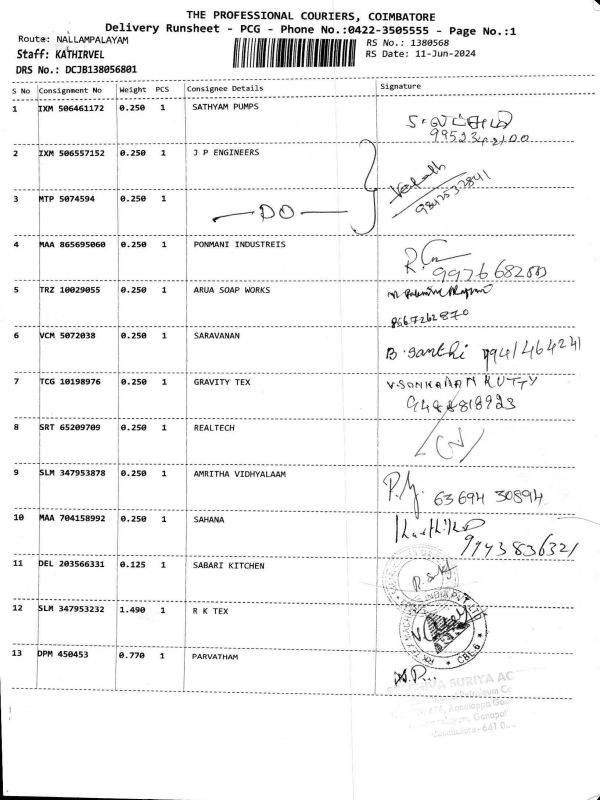 THE PROFESSIONAL COURIERS, COIMBATORE
Delivery Runsheet - PCG - Phone No.:0422-3505555 - Page No.:1
Route: NALLAMPALAYAM
RS No.: 1380568
Staff: KATHIRVEL
RS Date: 11-Jun-2024
DRS No.: DCJB138056801
S No Consignment No Weight PCS Consignee Details Signature
1 IXM 506461172 0.250 1 SATHYAM PUMPS
2 IXM 506557152 0.250 1 J P ENGINEERS
3 MTP 5074594 0.250 1 — DO —
9842532841
4 MAA 865695060 0.250 1 PONMANI INDUSTREIS
5 TRZ 10029055 0.250 1 ARUA SOAP WORKS
8667262870
6 VCM 5072038 0.250 1 SARAVANAN B. Santhi 9941464241
7 TCG 10198976 0.250 1 GRAVITY TEX V. SANKARAN KUTTY
8 SRT 65209709 0.250 1 REALTECH
9 SLM 347953878 0.250 1 AMRITHA VIDHYALAAM 63694 30894
10 MAA 704158992 0.250 1 SAHANA
9943836321
11 DEL 203566331 0.125 1 SABARI KITCHEN
12 SLM 347953232 1.490 1 R K TEX
CBE-6
13 DPM 450453 0.770 1 PARVATHAM
SURIYA AC